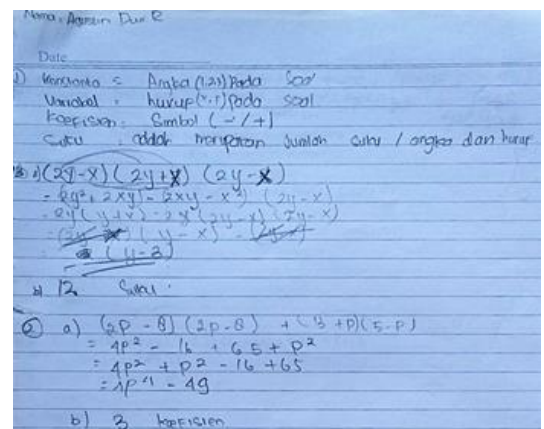 Nama: Agustin Dwi R
Date
1) Konstanta = Angka (1,2,3) Pada Soal
Variabel : huruf (x,y) pada soal
Koefisien : Simbol (- / +)
Suku : adalah merupakan Jumlah suku / angka dan huruf
a) (2y-x) (2y+x) (2y-x)
= (2y² + 2xy) - (2xy - x²) (2y-x)
= 2y (y+x) - 2x (2y-x) (2y-x)
(y-x) -
(y-3)
b) 12 Suku.
2) a) (2p - 8) (2p - 8) + (3 + p) (5 - p)
= 4p² - 16 + 65 + p²
= 4p² + p² - 16 + 65
= 4p⁴ - 49
b) 3 koefisien